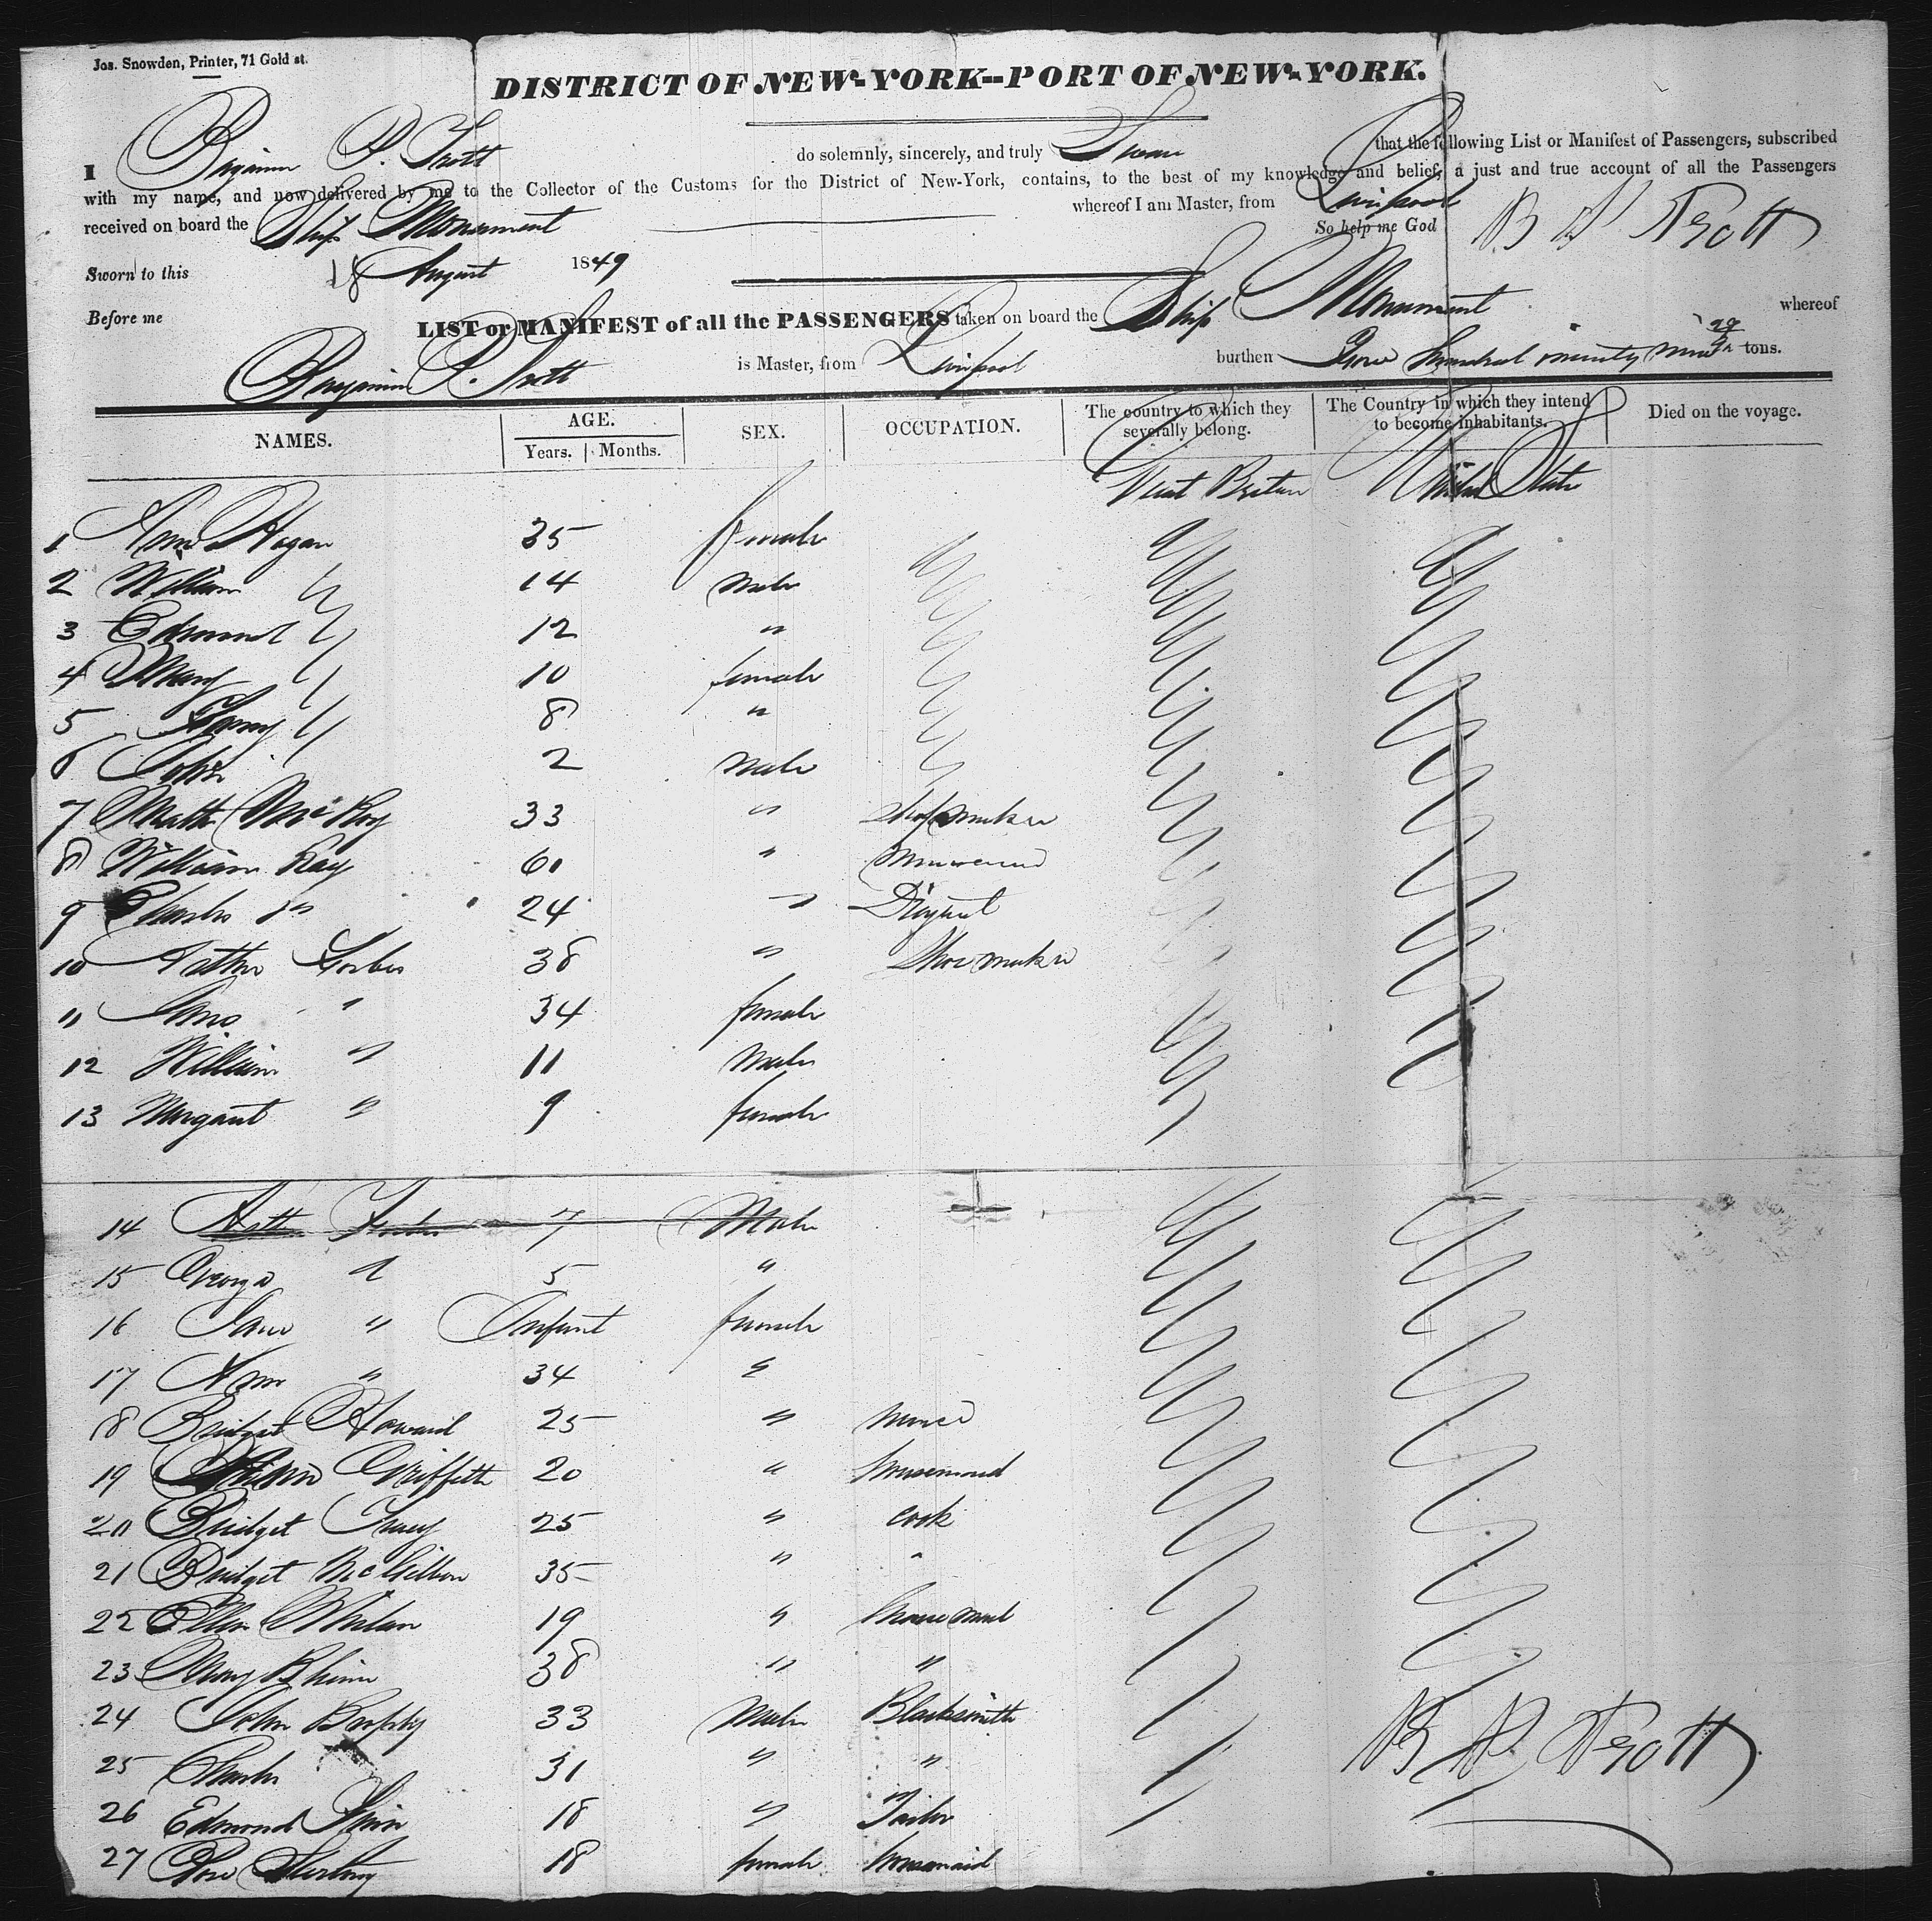 Jos. Snowden, Printer, 71 Gold st.
DISTRICT OF NEW-YORK--PORT OF NEW-YORK.
I Benjamin P. Trott do solemnly, sincerely, and truly Swear that the following List or Manifest of Passengers, subscribed
with my name, and now delivered by me to the Collector of the Customs for the District of New-York, contains, to the best of my knowledge and belief, a just and true account of all the Passengers
received on board the Ship Monument whereof I am Master, from Liverpool
So help me God B P Trott
Sworn to this 18 August 1849
Before me
LIST or MANIFEST of all the PASSENGERS taken on board the Ship Monument whereof
Benjamin P. Trott is Master, from Liverpool burthen hundred ninety nine tons.
NAMES. AGE. Years. Months. SEX. OCCUPATION. The country to which they severally belong. The Country in which they intend to become inhabitants. Died on the voyage.
Great Britain United States
1 Ann Hogan 35 female
2 William " 14 male
3 Edmond " 12 "
4 Mary " 10 female
5 " 8 "
6 John " 2 male
7 Matth McKoy 33 " Shoemaker
8 William Ray 60 "
9 Charles " 24 "
10 Forbes 38 " Shoe maker
11 Jane " 34 female
12 William " 11 male
13 Margaret " 9 female
14 Forbes 7 Male
15 George " 5 "
16 Jane " Infant female
17 Ann " 34 "
18 Bridget Howard 25 " nurse
19 Griffith 20 " housemaid
20 Bridget Tracy 25 " cook
21 Bridget McGibbon 35 " "
22 Ellen Whelan 19 " house maid
23 Mary 38 " "
24 John Brophy 33 Male Blacksmith
25 Charles 31 " "
26 Edmond 18 " Tailor
27 Rose 18 female housemaid
B P. Trott